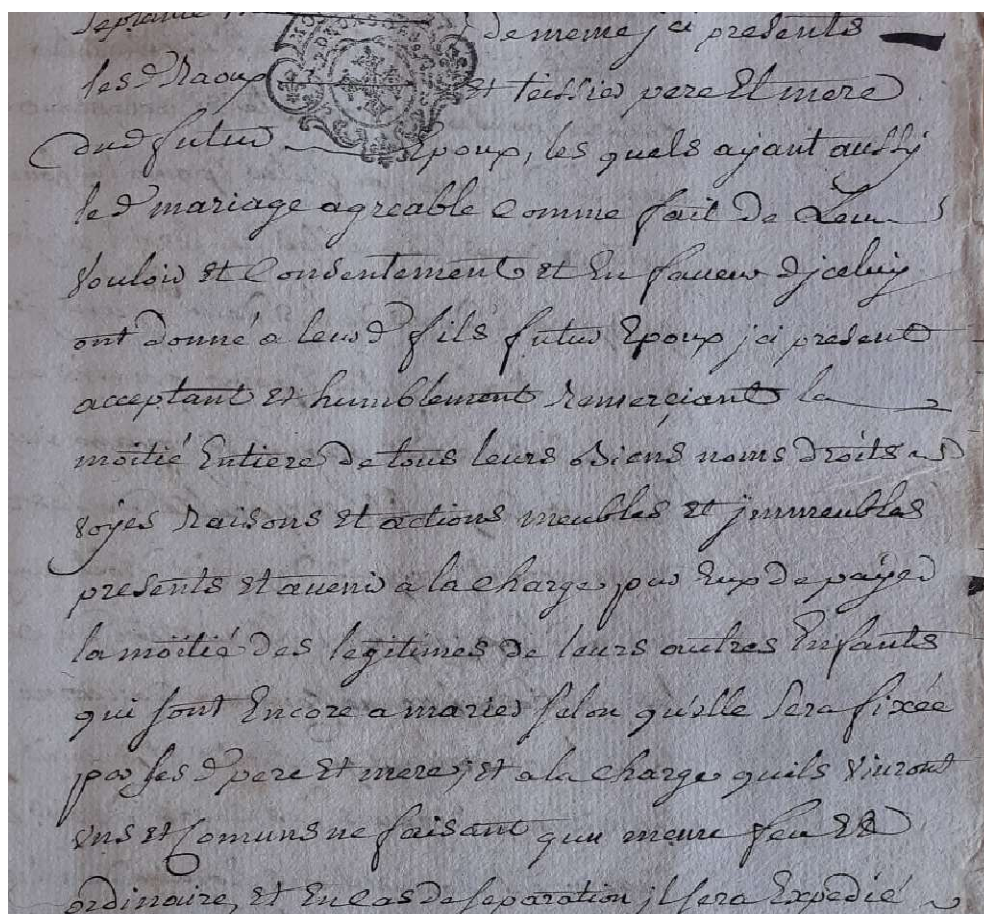 de meme jci presents
les d Raoux et teissier pere Et mere
dud futur Epoux, les quels ajant aussy
led mariage agreable Comme fait de Leur
vouloir et Consentement et En faveur d'jceluy
ont donné a leurd fils futur Epoux jci present
acceptant et humblement Remerçiant la
moitié Entiere de tous leurs Biens noms droits
voyes Raisons et actions meubles et jmmeubles
presents et avenir a la Charge par Eux de payer
la moitié des legitimes de leurs autres Enfants
qui sont Encore a marier selon qu'elle sera fixée
par ses d pere et mere, et a la Charge quils vivront
vns et Comuns ne faisant quu meme feu et
ordinaire, et En Cas de separation jl sera Expedié